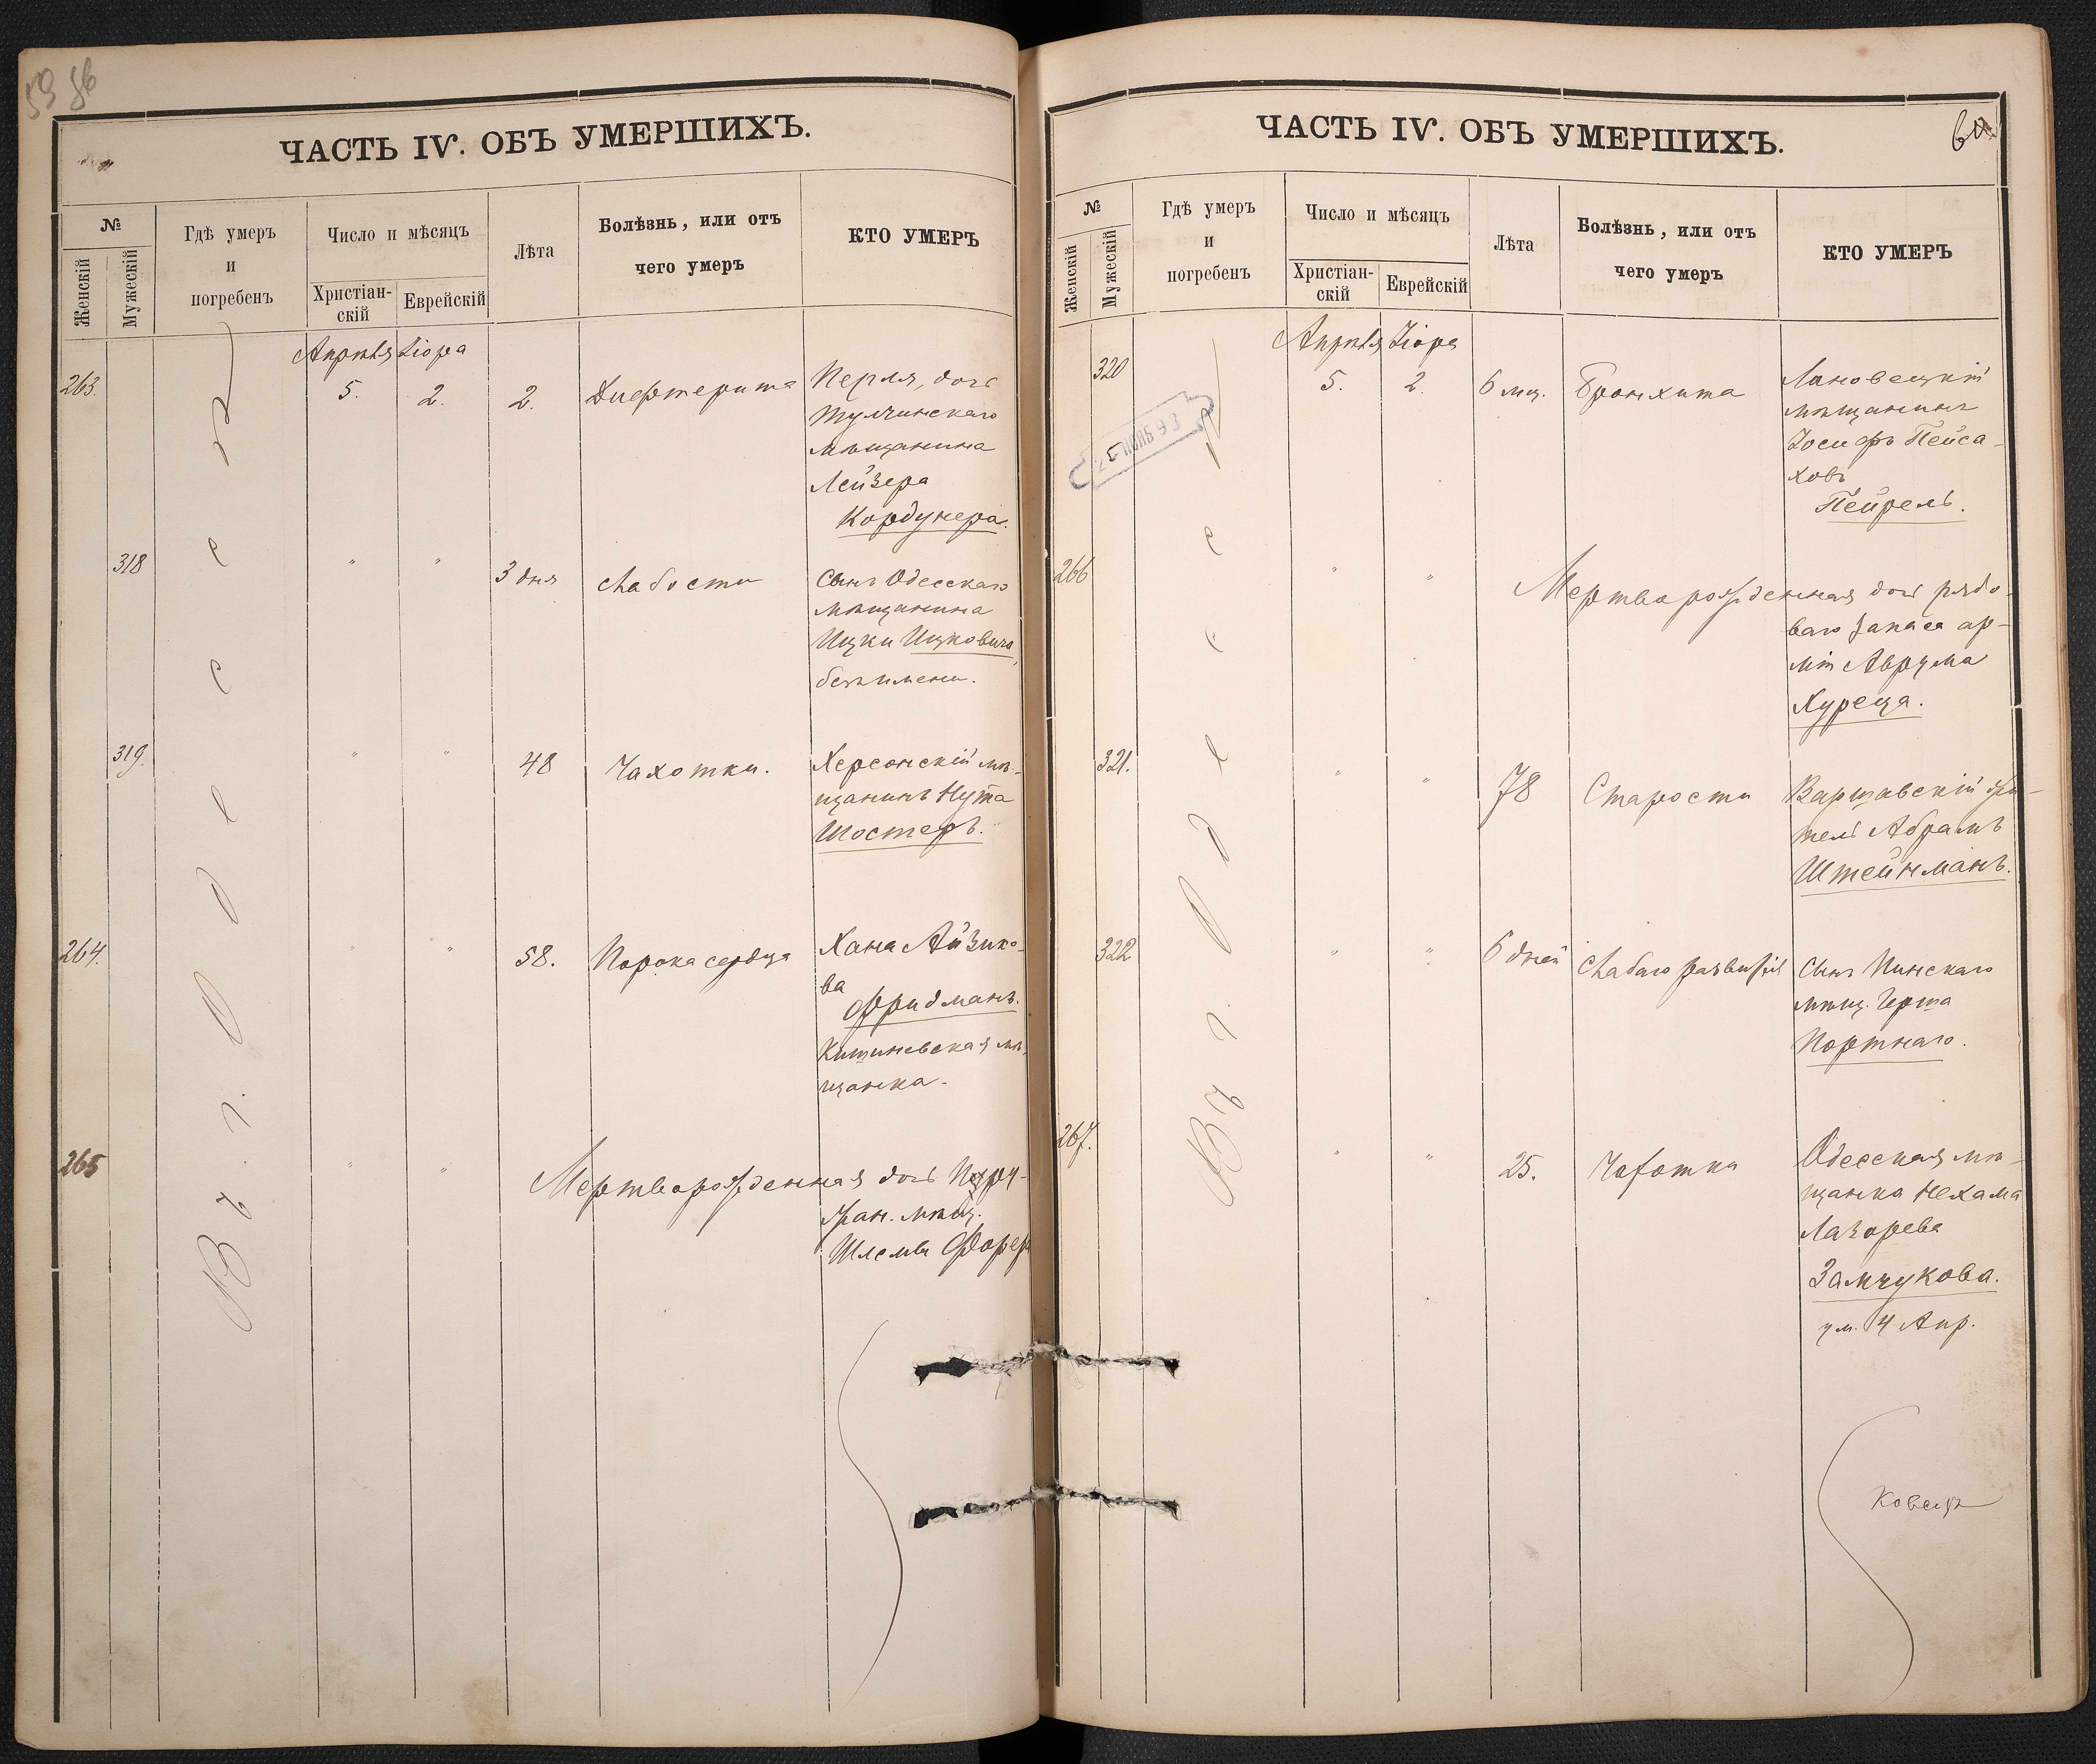 59
ЧАСТЬ IV. ОБЪ УМЕРШИХЪ.
№
Женскій
Мужескій
Гдѣ умеръ
и
погребенъ
Число и мѣсяцъ
Христіан-
скій
Еврейскій
Лѣта
Болѣзнь, или отъ
чего умеръ
КТО УМЕРЪ
Въ г. Одессѣ
Апрѣля Ііора
263. 5. 2. 2. Дифтерита Перля, дочь
Тульчинскаго
мѣщанина
Лейзера
Кордунера.
318 " " 3 дня слабости Сынъ Одесскаго
мѣщанина
Ицки Ицковича,
безъ имени.
319. " " 48 Чахотки. Херсонскій мѣ-
щанинъ Нута
Шостеръ.
264. " " 58. Порока сердца Хана Айзико-
ва
Фридманъ.
Кишиневская мѣ-
щанка.
265 " " Мертворожденная дочь
мѣщ.
Шлемы
ЧАСТЬ IV. ОБЪ УМЕРШИХЪ.
60
№
Женскій
Мужескій
Гдѣ умеръ
и
погребенъ
Число и мѣсяцъ
Христіан-
скій
Еврейскій
Лѣта
Болѣзнь, или отъ
чего умеръ
КТО УМЕРЪ
Въ г. Одессѣ
Апрѣля Ііора
320 5. 2. 6 мц. Бронхита Лановецкій
мѣщанинъ
Іосифъ Пейса-
ховъ
Пейрель.
266 " " Мертворожденная дочь рядо-
ваго запаса ар-
міи Аврума
Хуреца.
321. " " 78 Старости Варшавскій жи-
тель Абрамъ
Штейнманъ.
322 " " 6 дней слабаго развитія Сынъ Пинскаго
мѣщ. Герша
Портнаго.
267. " " 25. Чахотки Одесская мѣ-
щанка Нехама
Лазорева
Замчукова.
ум. 4 Апр.